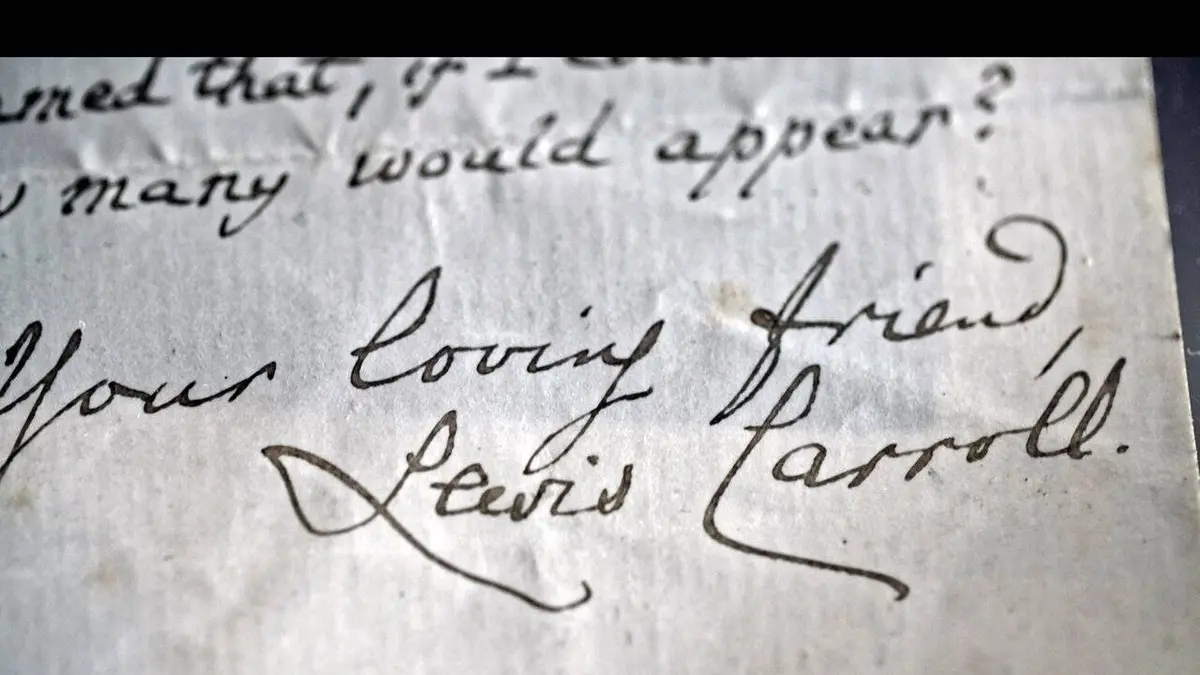 that, if I
many would appear?
Your loving friend,
Lewis Carroll.